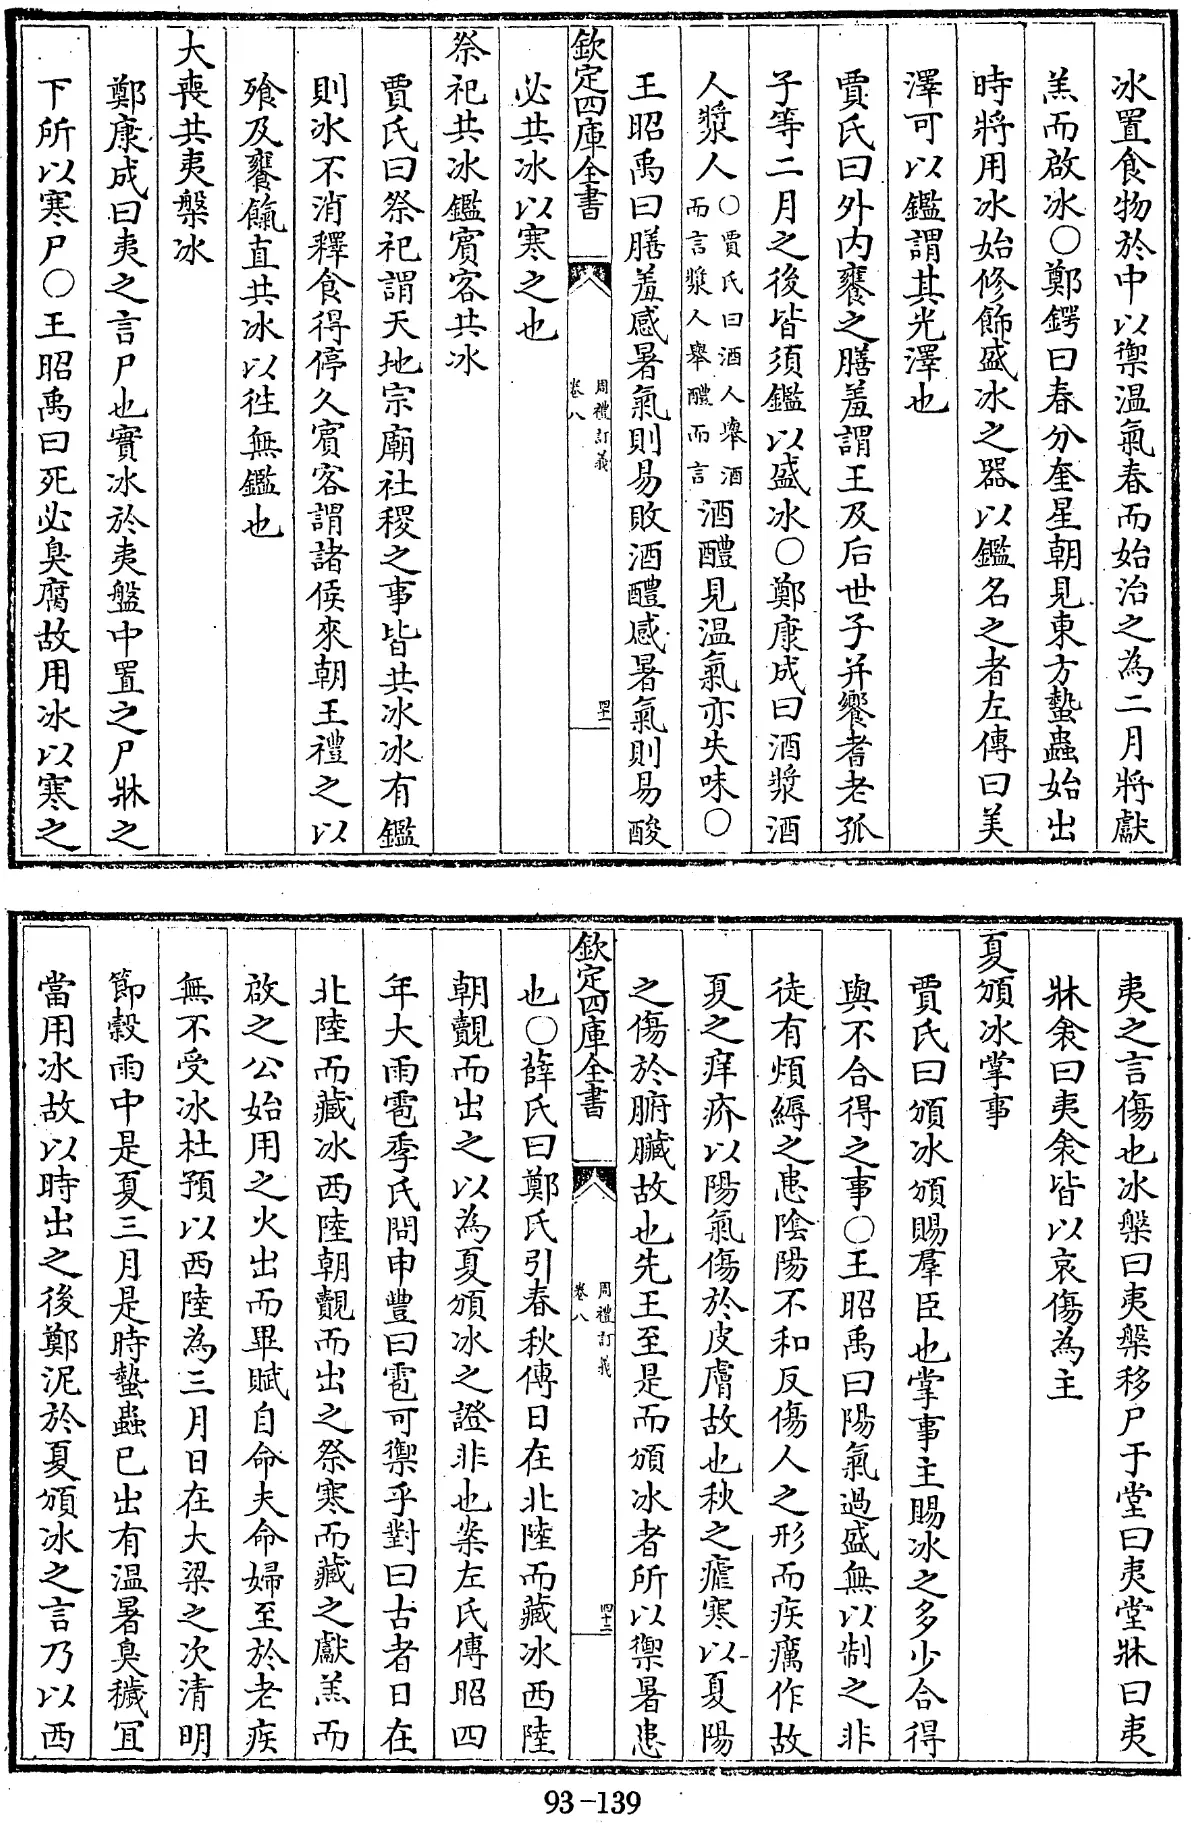 冰置食物於中以禦温氣春而始治之為二月將獻
羔而啟冰○鄭鍔曰春分奎星朝見東方蟄蟲始出
時將用冰始修飾盛冰之器以鑑名之者左傳曰美
澤可以鑑謂其光澤也
賈氏曰外内饔之膳羞謂王及后世子并饗耆老孤
子等二月之後皆須鑑以盛冰○鄭康成曰酒漿酒
人漿人○賈氏曰酒人舉酒而言漿人舉醴而言酒醴見温氣亦失味○
王昭禹曰膳羞感暑氣則易敗酒醴感暑氣則易酸
欽定四庫全書
周禮訂義
卷八
四十二
必共冰以寒之也
祭祀共冰鑑賓客共冰
賈氏曰祭祀謂天地宗廟社稷之事皆共冰冰有鑑
則冰不消釋食得停久賓客謂諸侯來朝王禮之以
飱及饔餼直共冰以徃無鑑也
大喪共夷槃冰
鄭康成曰夷之言尸也實冰於夷盤中置之尸牀之
下所以寒尸○王昭禹曰死必臭腐故用冰以寒之
夷之言傷也冰槃曰夷槃移尸于堂曰夷堂牀曰夷
牀衾曰夷衾皆以哀傷為主
夏頒冰掌事
賈氏曰頒冰頒賜羣臣也掌事主賜冰之多少合得
與不合得之事○王昭禹曰陽氣過盛無以制之非
徒有煩縟之患陰陽不和反傷人之形而疾癘作故
夏之痒疥以陽氣傷於皮膚故也秋之瘧寒以夏陽
之傷於腑臟故也先王至是而頒冰者所以禦暑患
欽定四庫全書
周禮訂義
卷八
四十三
也○薛氏曰鄭氏引春秋傳日在北陸而藏冰西陸
朝覿而出之以為夏頒冰之證非也案左氏傳昭四
年大雨雹季氏問申豐曰雹可禦乎對曰古者日在
北陸而藏冰西陸朝覿而出之祭寒而藏之獻羔而
啟之公始用之火出而畢賦自命夫命婦至於老疾
無不受冰杜預以西陸為三月日在大梁之次清明
節穀雨中是夏三月是時蟄蟲已出有温暑臭穢冝
當用冰故以時出之後鄭泥於夏頒冰之言乃以西
93-139